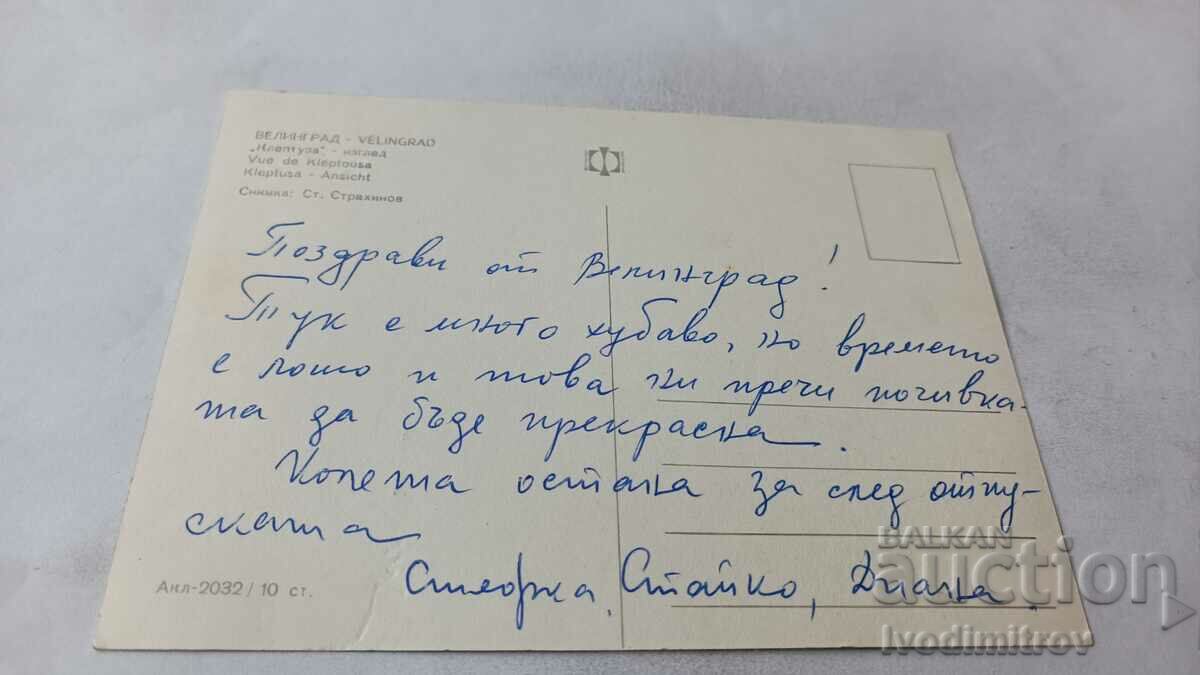 ВЕЛИНГРАД - VELINGRAD
„Клептуза" - изглед
Vue de Kleptousa
Kleptusa - Ansicht
Снимка: Ст. Страхинов
Поздрави от Велинград!
Тук е много хубаво, но времето
е лошо и това ни пречи почивка-
та да бъде прекрасна.
Колета остана за след отпу-
ската
Стайко, Диана.
Акл-2032/10 ст.
BALKAN
auction
Ivodimitrov